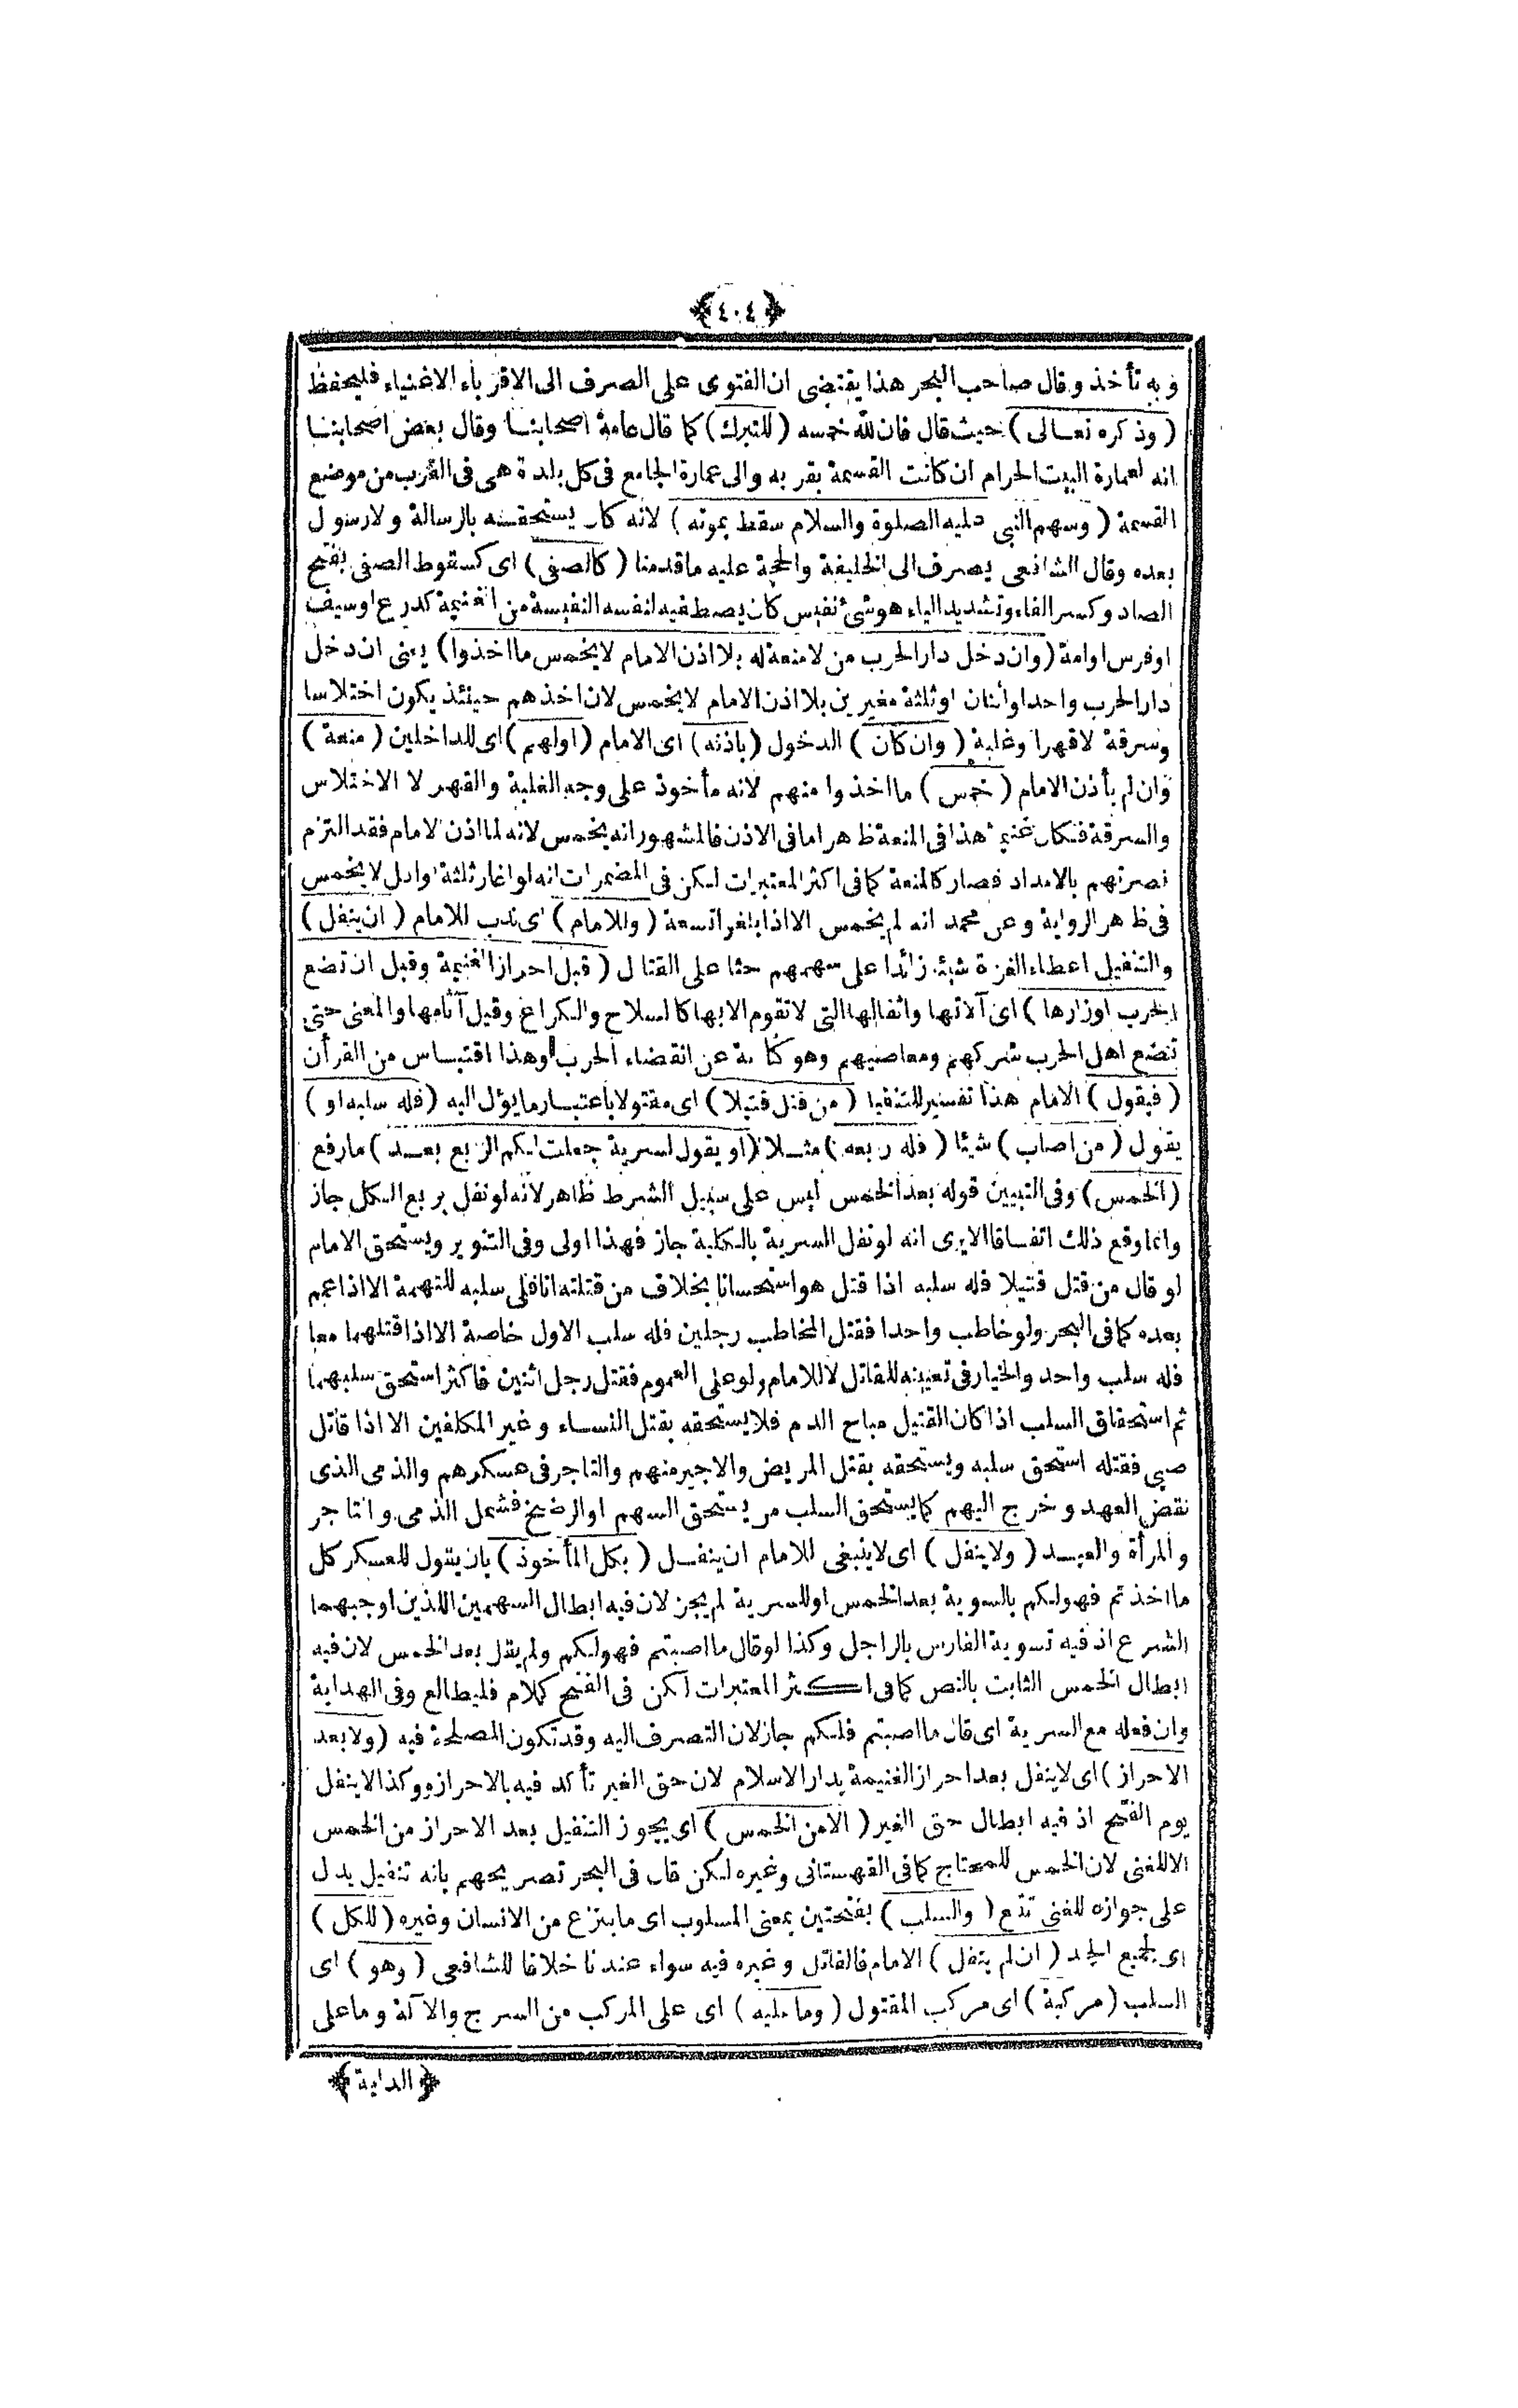 ﴿٤٠٤﴾
وبه تأخذ وقال صاحب البحر هذا يقتضى ان الفتوى على الصرف الى الاقرباء الاغنياء فليحفظ
(وذكره تعالى) حيث قال فان لله خمسه (للتبرك) كما قال عامة اصحابنا وقال بعض اصحابنا
انه لعمارة البيت الحرام ان كانت القسمة بقربه والى عمارة الجامع فى كل بلدة هى فى القرب من موضع
القسمة (وسهم النبى عليه الصلوة والسلام سقط بموته) لانه كان يستحقه بالرسالة ولا رسول
بعده وقال الشافعى يصرف الى الخليفة والحجة عليه ما قدمنا (كالصفى) اى كسقوط الصفى بفتح
الصاد وكسر الفاء وتشديد الياء هو شئ نفيس كان يصطفيه لنفسه النفيسة من الغنيمة كدرع او سيف
او فرس او امة (وان دخل دار الحرب من لا منعة له بلا اذن الامام لا يخمس ما اخذوا) يعنى ان دخل
دار الحرب واحد او اثنان او ثلثة مغيرين بلا اذن الامام لا يخمس لان اخذهم حينئذ يكون اختلاسا
وسرقة لا قهرا وغلبة (وان كان) الدخول (باذنه) اى الامام (اولهم) اى للداخلين (منعة)
وان لم يأذن الامام (خمس) ما اخذوا منهم لانه مأخوذ على وجه الغلبة والقهر لا الاختلاس
والسرقة فكان غنيمة هذا فى المنعة ظاهر اما فى الاذن فالمشهور انه يخمس لانه لما اذن الامام فقد التزم
نصرتهم بالامداد فصار كالمنعة كما فى اكثر المعتبرات لكن فى المضمرات انه لو اغار ثلثة او اقل لا يخمس
فى ظاهر الرواية وعن محمد انه لم يخمس الا اذا بلغوا تسعة (وللامام) اى ندب للامام (ان ينفل)
والتنفيل اعطاء الغزاة شيئا زائدا على سهمهم حثا على القتال (قبل احراز الغنيمة وقبل ان تضع
الحرب اوزارها) اى آلاتها واثقالها التى لا تقوم الا بها كالسلاح والكراع وقيل آثامها والمعنى حتى
تضع اهل الحرب شركهم ومعاصيهم وهو كناية عن انقضاء الحرب وهذا اقتباس من القرأن
(فيقول) الامام هذا تفسير للتنفيل (من قتل قتيلا) اى مقتولا باعتبار ما يؤل اليه (فله سلبه او)
يقول (من اصاب) شيئا (فله ربعه) مثلا (او يقول لسرية جعلت لكم الربع بعد) ما رفع
(الخمس) وفى التبيين قوله بعد الخمس ليس على سبيل الشرط ظاهر لانه لو نفل بربع الكل جاز
وانما وقع ذلك اتفاقا الا يرى انه لو نفل السرية بالكلية جاز فهذا اولى وفى التنوير ويستحق الامام
لو قال من قتل قتيلا فله سلبه اذا قتل هو استحسانا بخلاف من قتلته انا فلى سلبه للتهمة الا اذا عمم
بعده كما فى البحر ولو خاطب واحدا فقتل المخاطب رجلين فله سلب الاول خاصة الا اذا قتلهما معا
فله سلب واحد والخيار فى تعيينه للقاتل لا للامام ولو على العموم فقتل رجل اثنين فاكثر استحق سلبهما
ثم استحقاق السلب اذا كان القتيل مباح الدم فلا يستحقه بقتل النساء وغير المكلفين الا اذا قاتل
صبى فقتله استحق سلبه ويستحقه بقتل المريض والاجير منهم والتاجر فى عسكرهم والذمى الذى
نقض العهد وخرج اليهم كما يستحق السلب من يستحق السهم او الرضخ فشمل الذمى والتاجر
والمرأة والعبد (ولا ينفل) اى لا ينبغى للامام ان ينفل (بكل المأخوذ) بان يقول للعسكر كل
ما اخذتم فهو لكم بالسوية بعد الخمس او للسرية لم يجز لان فيه ابطال السهمين اللذين اوجبهما
الشرع اذ فيه تسوية الفارس بالراجل وكذا لو قال ما اصبتم فهو لكم ولم يقل بعد الخمس لان فيه
ابطال الخمس الثابت بالنص كما فى اكثر المعتبرات لكن فى الفتح كلام فليطالع وفى الهداية
وان فعله مع السرية اى قال ما اصبتم فلكم جاز لان التصرف اليه وقد تكون المصلحة فيه (ولا بعد
الاحراز) اى لا ينفل بعد احراز الغنيمة بدار الاسلام لان حق الغير تأكد فيه بالاحراز وكذا لا ينفل
يوم الفتح اذ فيه ابطال حق الغير (الا من الخمس) اى يجوز التنفيل بعد الاحراز من الخمس
الا للغنى لان الخمس للمحتاج كما فى القهستانى وغيره لكن قال فى البحر تصريحهم بانه تنفيل يدل
على جوازه للغنى تتبع (والسلب) بفتحتين بمعنى المسلوب اى ما ينزع من الانسان وغيره (للكل)
اى لجميع الجند (ان لم ينفل) الامام فالقاتل وغيره فيه سواء عندنا خلافا للشافعى (وهو) اى
السلب (مركبه) اى مركب المقتول (وما عليه) اى على المركب من السرج والآلة وما على
﴿الدابة﴾